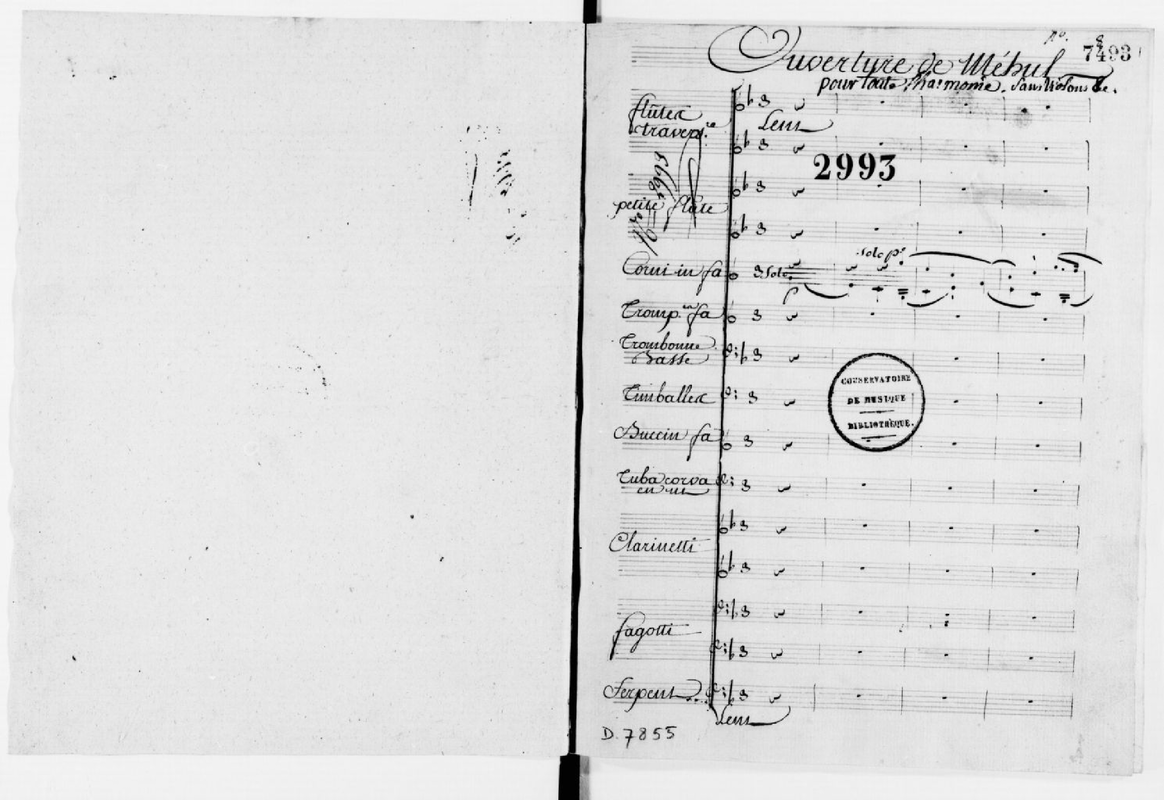 N.º 8
7493
Ouverture de Méhul
pour toute l'harmonie. Sans Violons &c.
flûtes
travers.re
Lent
2993
N.º 2993
petite flûte
solo p.º
Corni in fa
Solo
Tromp. en fa
Trombonne
Basse
CONSERVATOIRE
DE MUSIQUE
BIBLIOTHÈQUE.
Timballes
Buccin fa
Tuba corva
en ut
Clarinetti
fagotti
Serpent
Lent
D. 7855